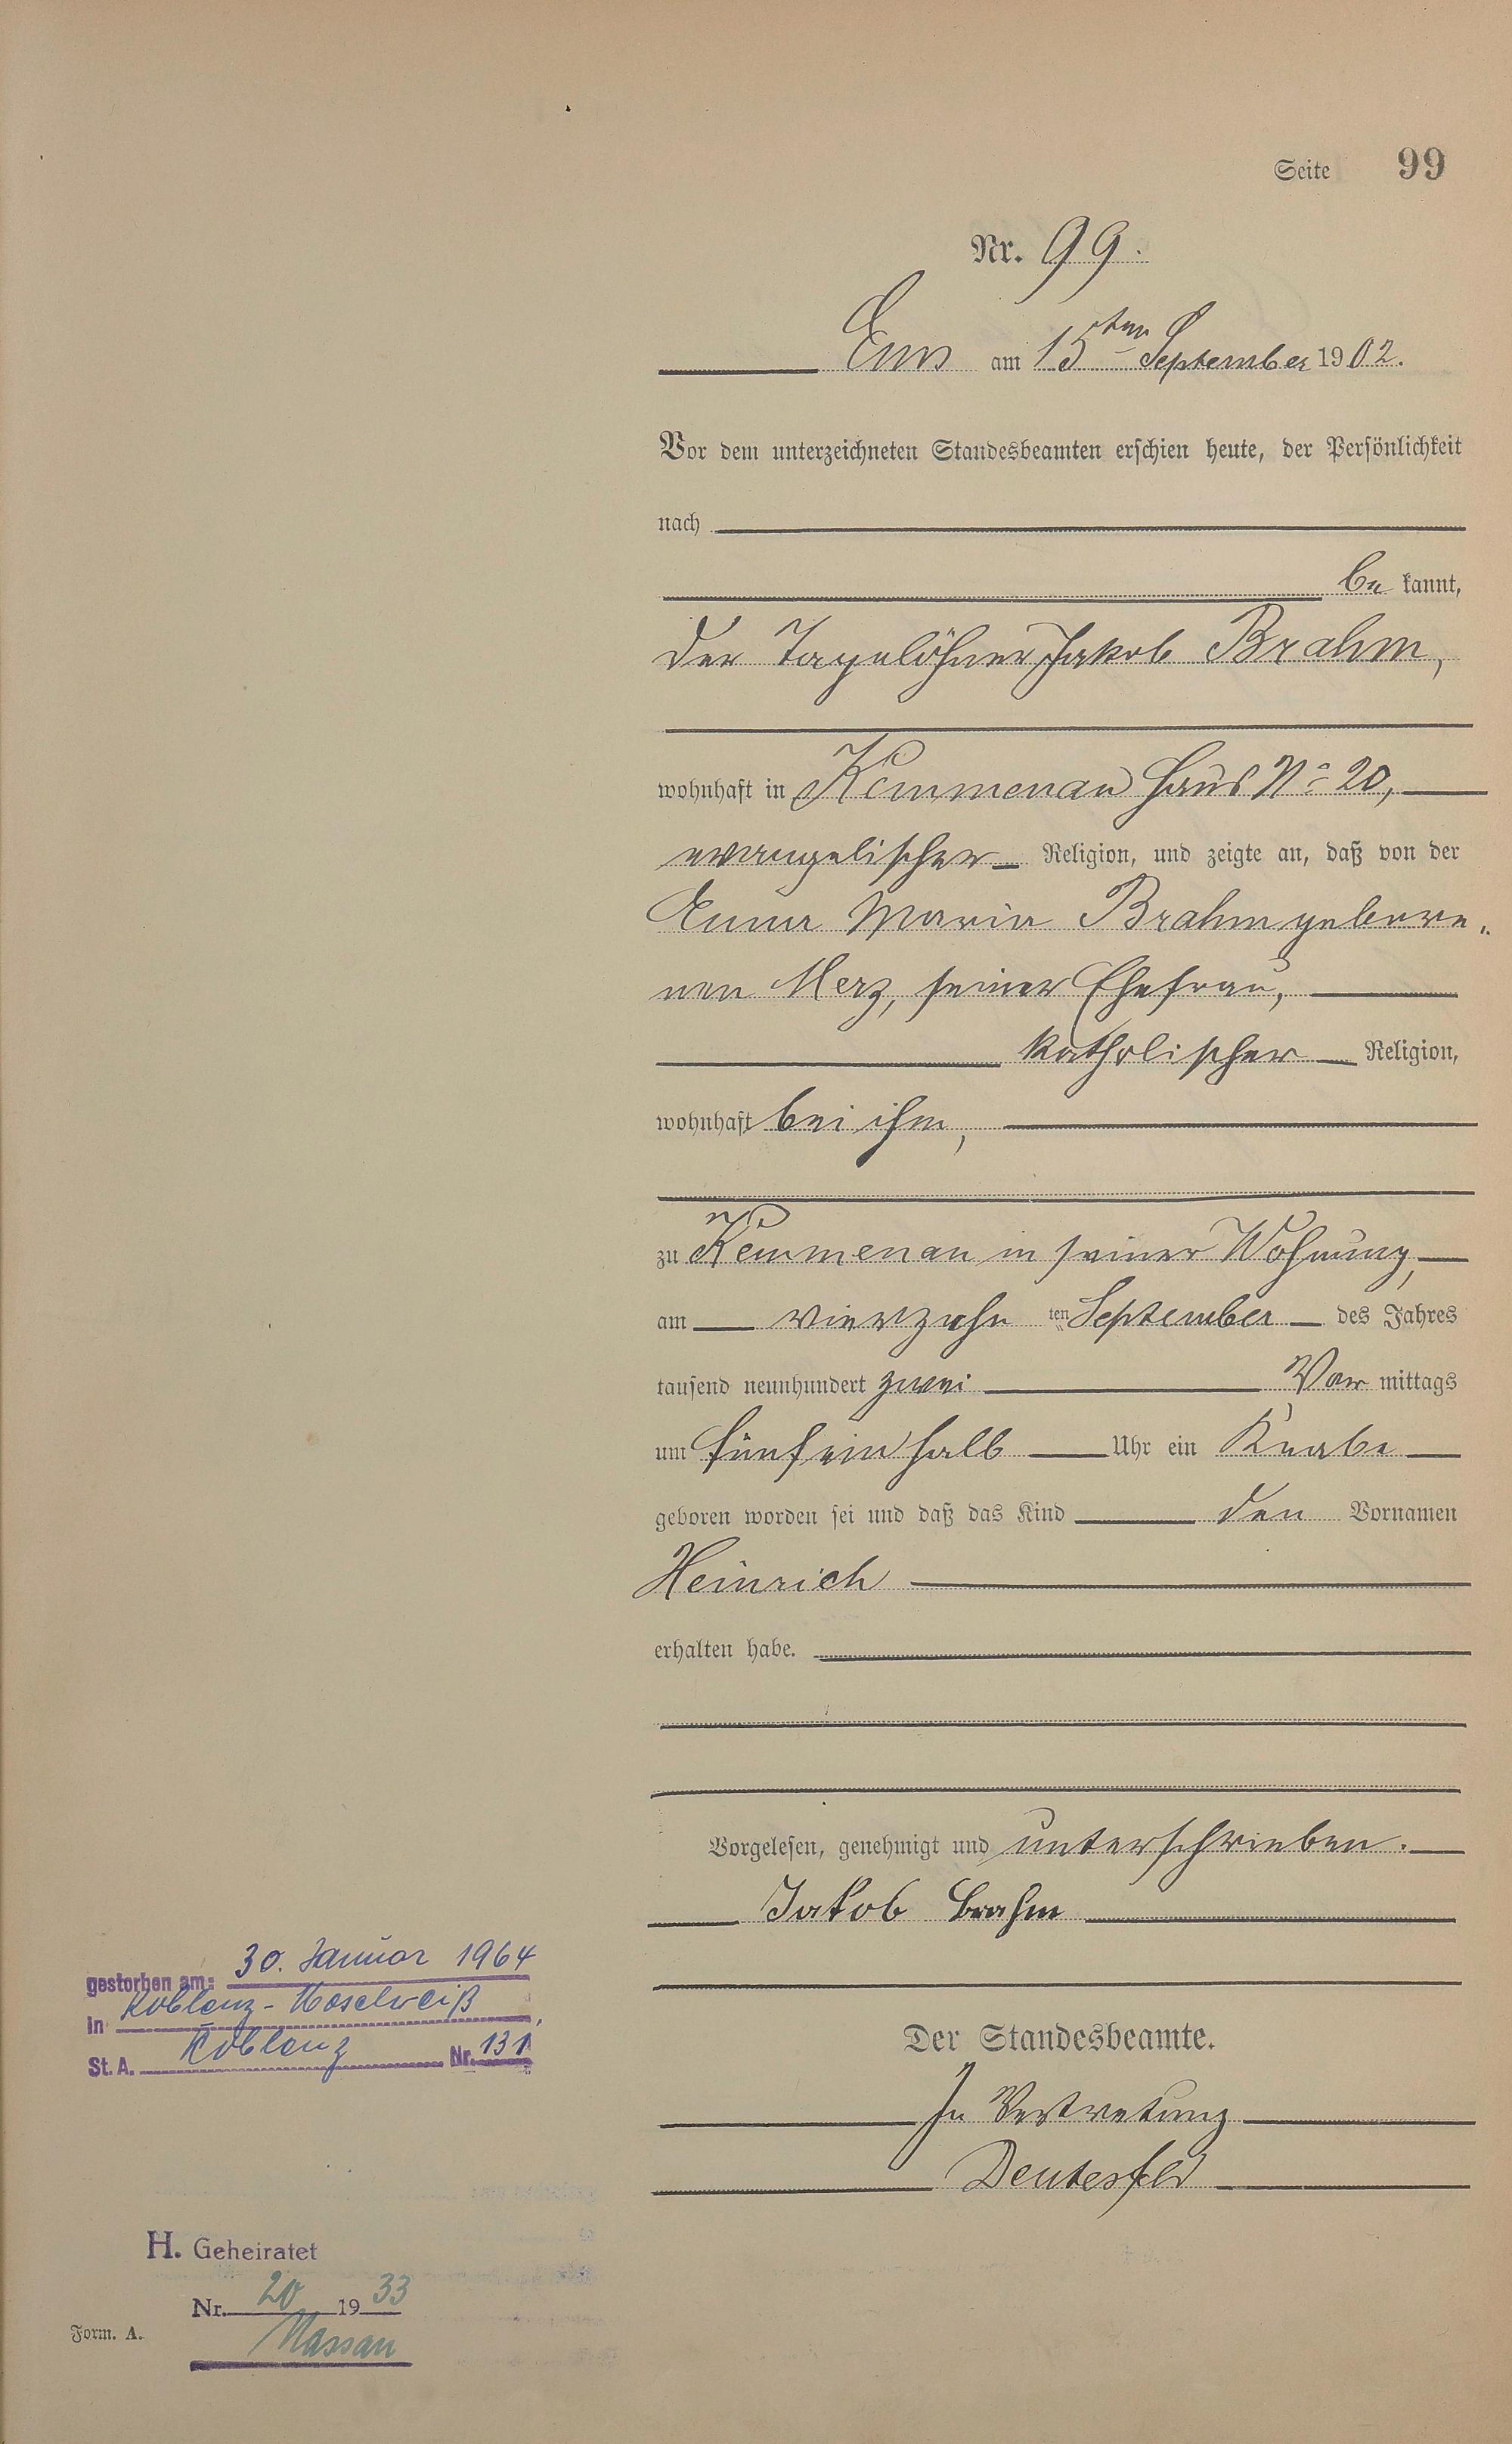 Seite 99
Nr. 99.
Ems am 15ten September 1902.
Vor dem unterzeichneten Standesbeamten erschien heute, der Persönlichkeit
nach
be kannt,
der Tagelöhner Jakob Brahm,
wohnhaft in Kemmenau Haus No 20,
evangelischer Religion, und zeigte an, daß von der
Anna Maria Brahm gebore„
nen Merz, seiner Ehefrau,
katholischer Religion,
wohnhaft bei ihm,
zu Kemmenau in seiner Wohnung,
am vierzehn ten September des Jahres
tausend neunhundert zwei Vor mittags
um fünfeinhalb Uhr ein Knabe
geboren worden sei und daß das Kind den Vornamen
Heinrich
erhalten habe.
Vorgelesen, genehmigt und unterschrieben.
Jakob Brahm
Der Standesbeamte.
In Vertretung
Deutesfeld
gestorben am: 30. Januar 1964
in Koblenz-Moselweiß,
St. A. Koblenz Nr. 131
H. Geheiratet
Nr. 20 1933
Nassau
Form. A.